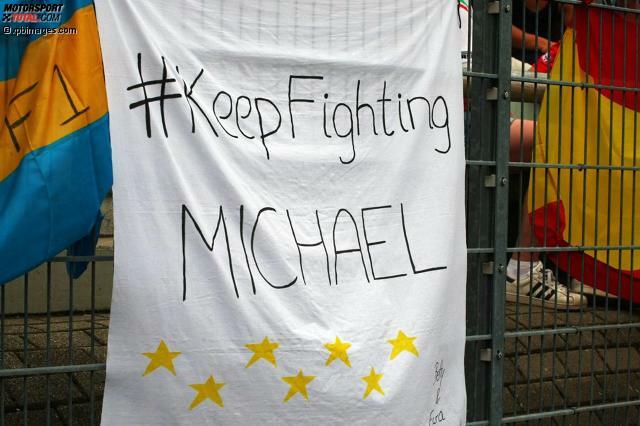 MOTORSPORT
TOTAL.COM
©xpbimages.com
F1
#KeepFighting
MICHAEL